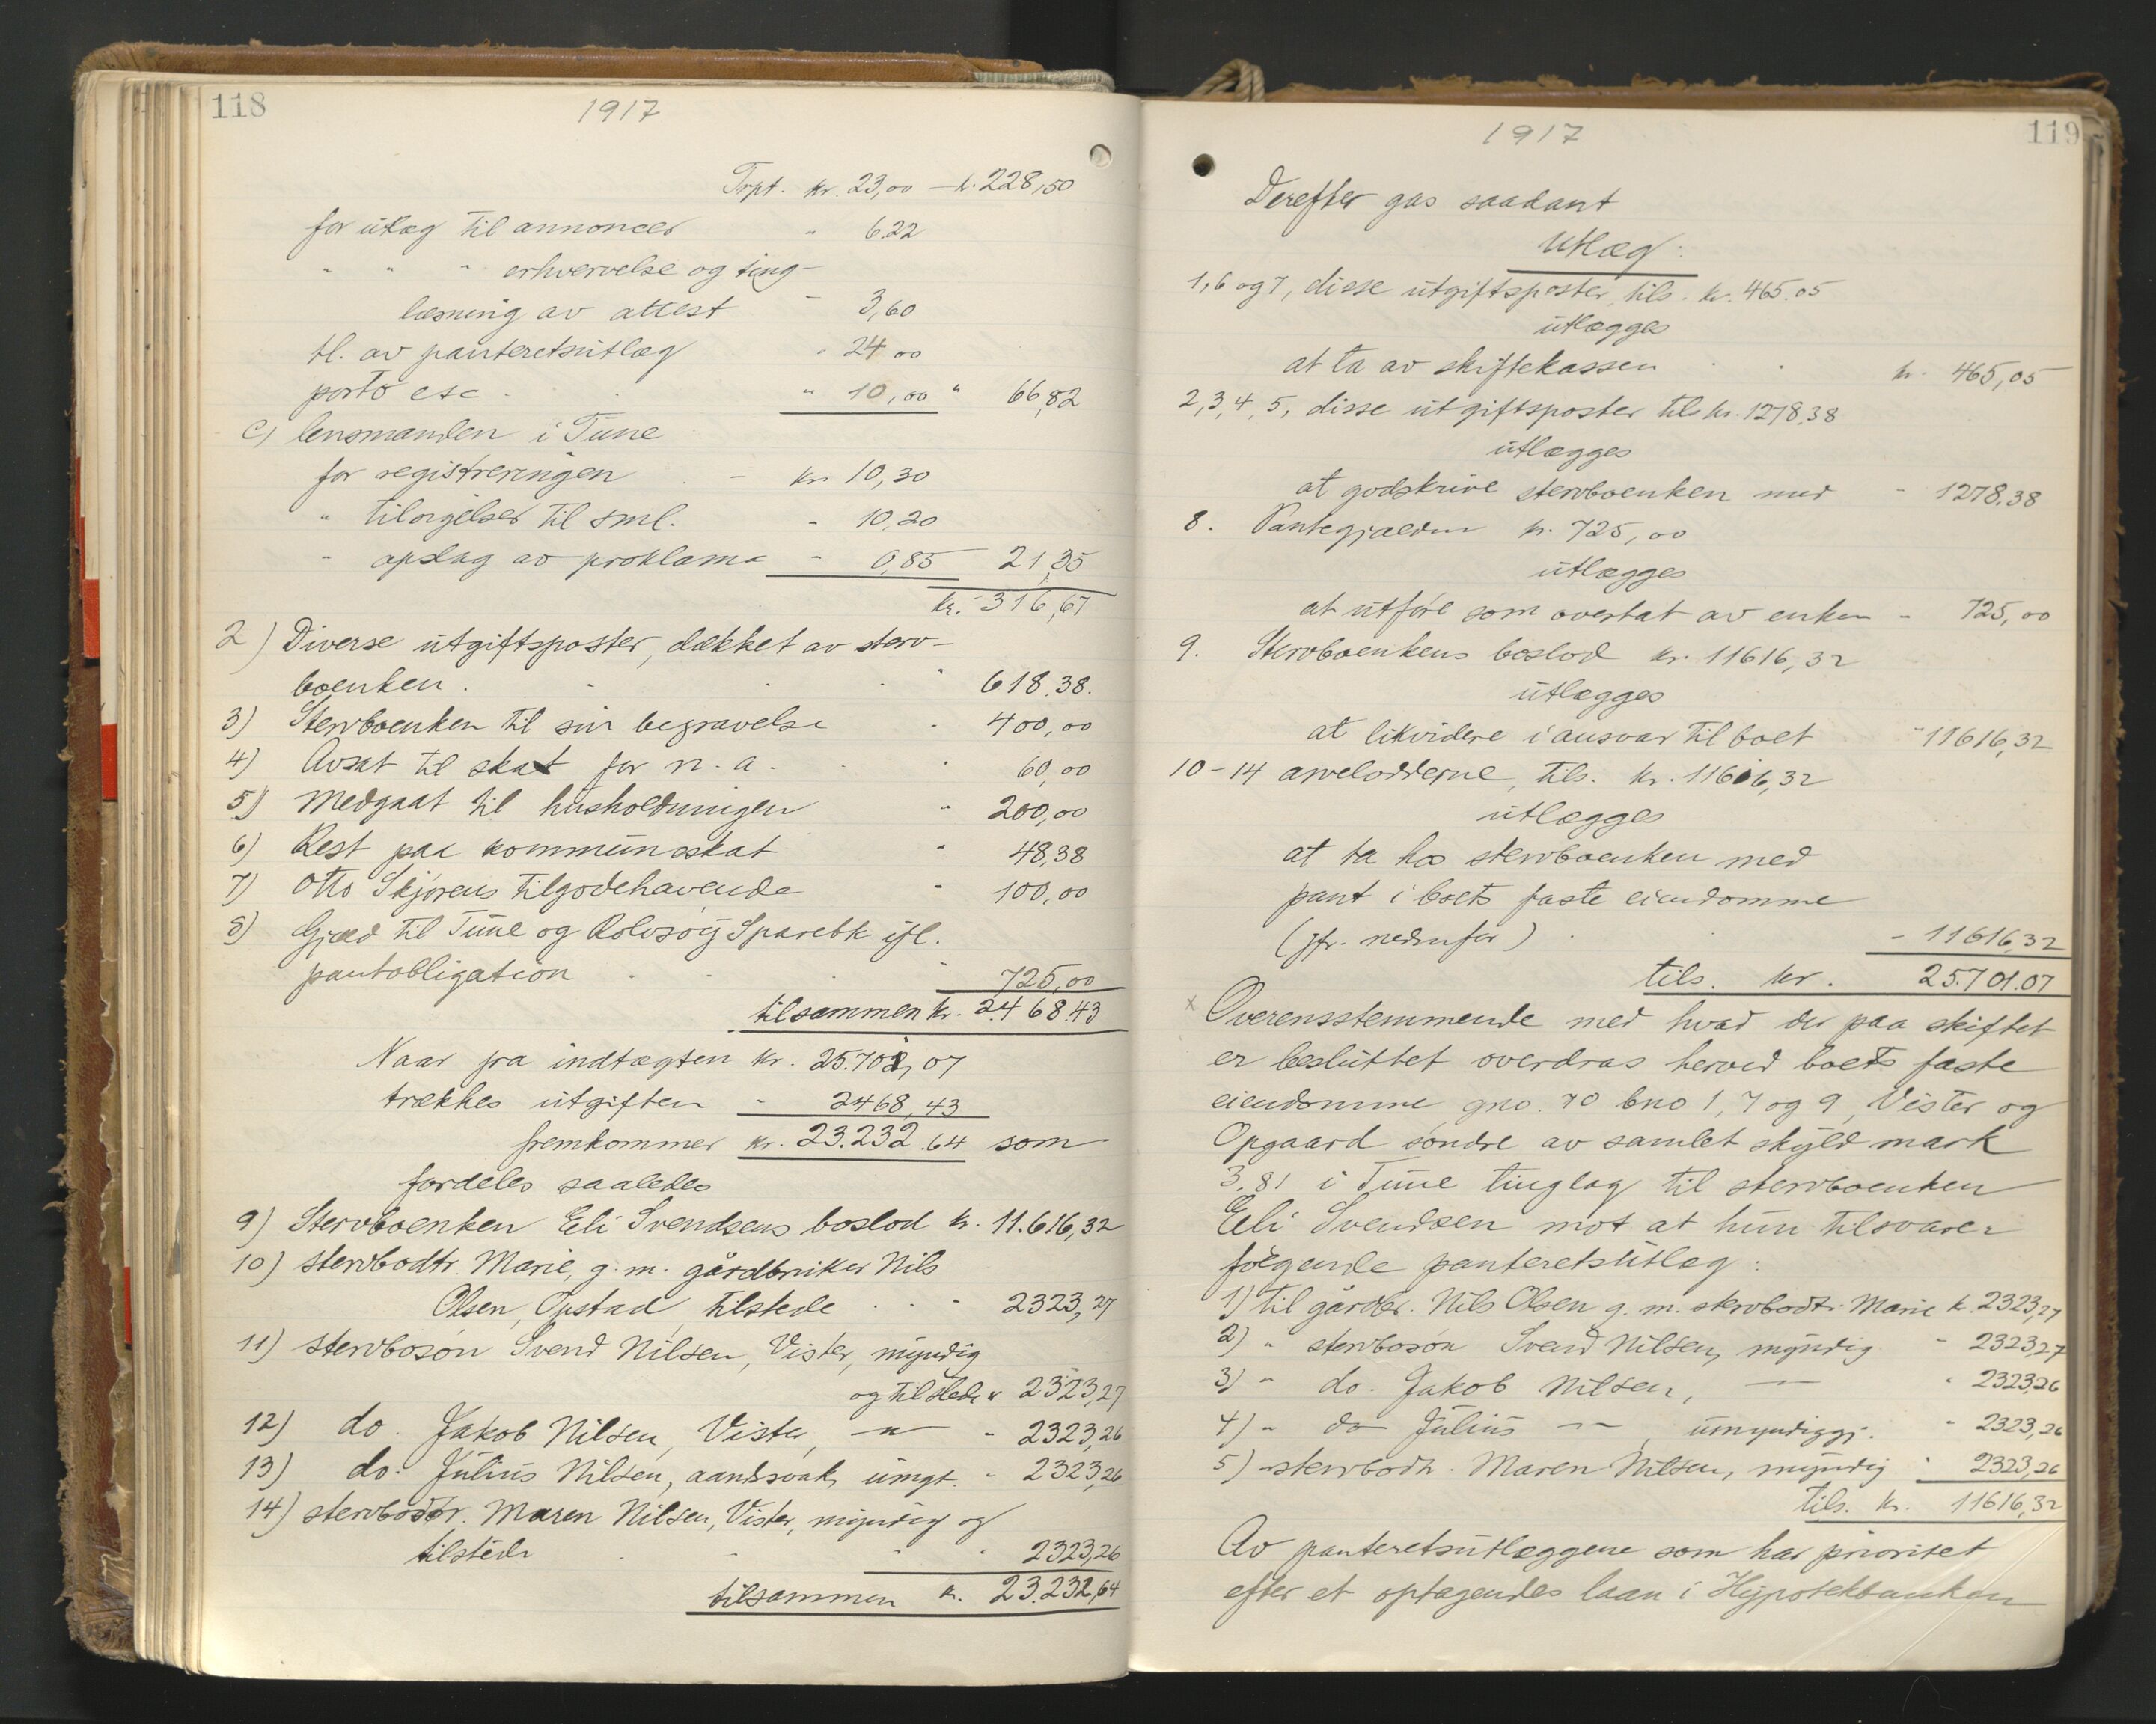 118
1917
Trpt. kr. 23,00 – k. 228,50
for utlæg til annoncer " 6.22
" " " erhvervelse og ting-
læsning av attest " 3,60
tl. av panteretsutlæg " 24 00
porto etc . " 10,00 " 66,82
c) lensmanden i Tune
for registreringen . – kr. 10,30
" tilsigelser til sml. " 10,20
" opslag av proklama " 0,85 21,35
kr. 316,67
2) Diverse utgiftsposter, dækket av sterv-
boenken . . . . " 618.38.
3) Stervboenken til sin begravelse " 400,00
4) Avsat til skat for n. a. . " 60,00
5) Medgaat til husholdningen " 200,00
6) Rest paa kommuneskat " 48,38
7) Otto Skjørens tilgodehavende " 100,00
8) Gjæld til Tune og Rolvsøy Sparebk ifl.
pantobligation . . . " 725,00
tilsammen kr. 2468.43
Naar fra indtægten kr. 25.701,07
trækkes utgiften " 2468,43
fremkommer kr. 23.232.64 som
fordeles saaledes
9) Stervboenken Eli Svendsens boslod kr. 11.616,32
10) stervbodtr. Marie, g. m. gårdbruker Nils
Olsen, Opstad, tilstede . . " 2323,27
11) stervbosøn Svend Nilsen, Vister, myndig
og tilstede " 2323,27
12) do. Jakob Nilsen, Vister, –"– " 2323,26
13) do. Julius Nilsen, aandssvak, umgt. " 2323,26
14) stervbodtr. Maren Nilsen, Vister, myndig og
tilstede . . . " 2323,26
tilsammen kr. 23.232,64
119
1917
Derefter gas saadant
Utlæg:
1, 6 og 7, disse utgiftsposter, tils. kr. 465.05
utlægges
at ta av skiftekassen . . kr. 465,05
2, 3, 4, 5, disse utgiftsposter tils kr. 1278.38
utlægges
at godskrive stervboenken med " 1278.38
8. Pantegjælden kr. 725,00
utlægges
at utføre som overtat av enken " 725,00
9. Stervboenkens boslod kr. 11616,32
utlægges
at likvidere i ansvar til boet " 11616,32
10 – 14 arvelodderne, tils. kr. 11616,32
utlægges
at ta hos stervboenken med
pant i boets faste eiendomme
(jfr. nedenfor) . . " 11616,32
tils. kr. 25.701.07
x Overensstemmende med hvad der paa skiftet
er besluttet overdras herved boets faste
eiendomme gno. 70 bno 1, 7 og 9, Vister og
Opgaard søndre av samlet skyld mark
3,81 i Tune tinglag til stervboenken
Eli Svendsen mot at hun tilsvarer
følgende panteretsutlæg:
1) til gårdbr. Nils Olsen g. m. stervbodtr. Marie k. 2323,27
2) " stervbosøn Svend Nilsen, myndig " 2323,27
3) " do. Jakob Nilsen, –"– " 2323,26
4) " do Julius –"–, umyndiggj. " 2323,26
5) " stervbodtr. Maren Nilsen, myndig " 2323,26
tils. kr. 11616,32
Av panteretsutlæggene som har prioritet
efter et optagendes laan i Hypotekbanken